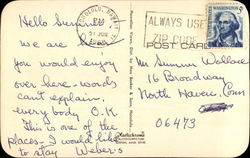 Hello Summers
we are here
you would enjoy
over here - words
can't explain,
every body O.K.
This is one of the
places - I would like
to stay Weber's
HONOLULU, HAWAII
ALWAYS USE
ZIP CODE
WASHINGTON
5
POST CARD
Mr Sumner Wallace
16 Broadway
North Haven, Conn
06473